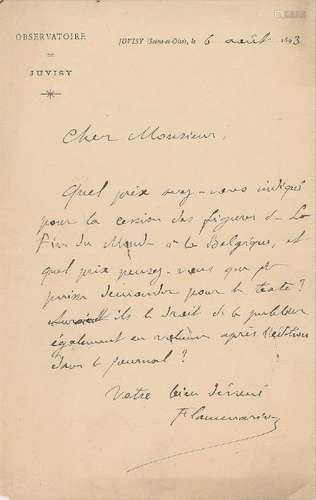 OBSERVATOIRE
DE
JUVISY
JUVISY (Seine-et-Oise), le 6 août 1893
Cher Monsieur,
Quel prix avez-vous indiqué
pour la cession des figures de La
Fin du Monde à la Belgique, et
quel prix pensez-vous que je
puisse demander pour le texte?
Auraient ils le droit de le publier
également en volume après l'édition
dans le journal?
Votre bien dévoué
Flammarion